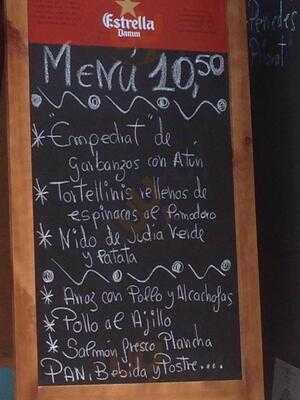 Estrella
Damm
Menú 10,50
* "Empedrat" de
garbanzos con Atún
* Tortellinis rellenos de
espinacas al Pomodoro
* Nido de Judia Verde
y Patata
* Arroz con Pollo y Alcachofas
* Pollo al Ajillo
* Salmón fresco Plancha
PAN, Bebida y Postre....